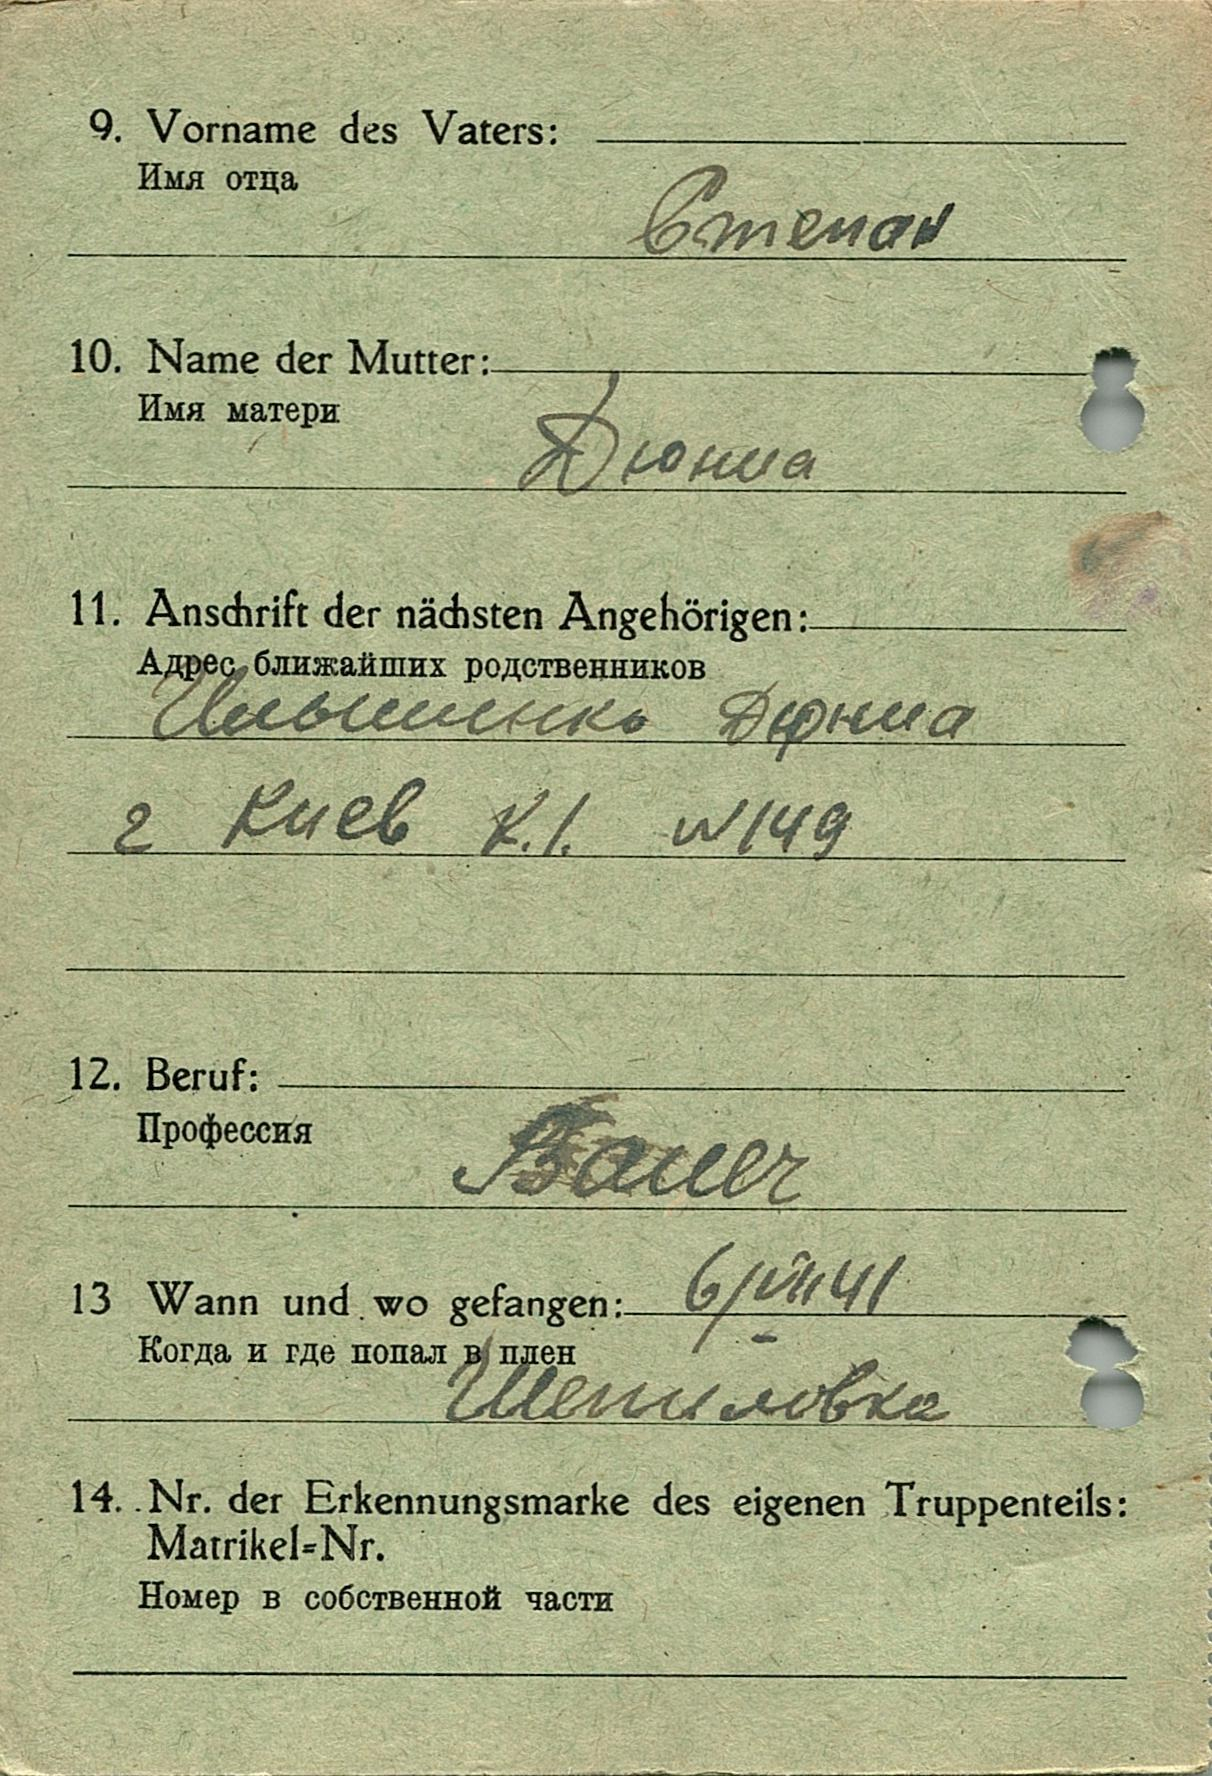 9. Vorname des Vaters:
Имя отца
Степан
10. Name der Mutter:
Имя матери
Дюниа
11. Anschrift der nächsten Angehörigen:
Адрес ближайших родственников
Дюниа
г Киев К.1. N149
12. Beruf:
Профессия
Bauer
13 Wann und wo gefangen: 6/VIII 41
Когда и где попал в плен
Шепиловка
14. Nr. der Erkennungsmarke des eigenen Truppenteils:
Matrikel=Nr.
Номер в собственной части